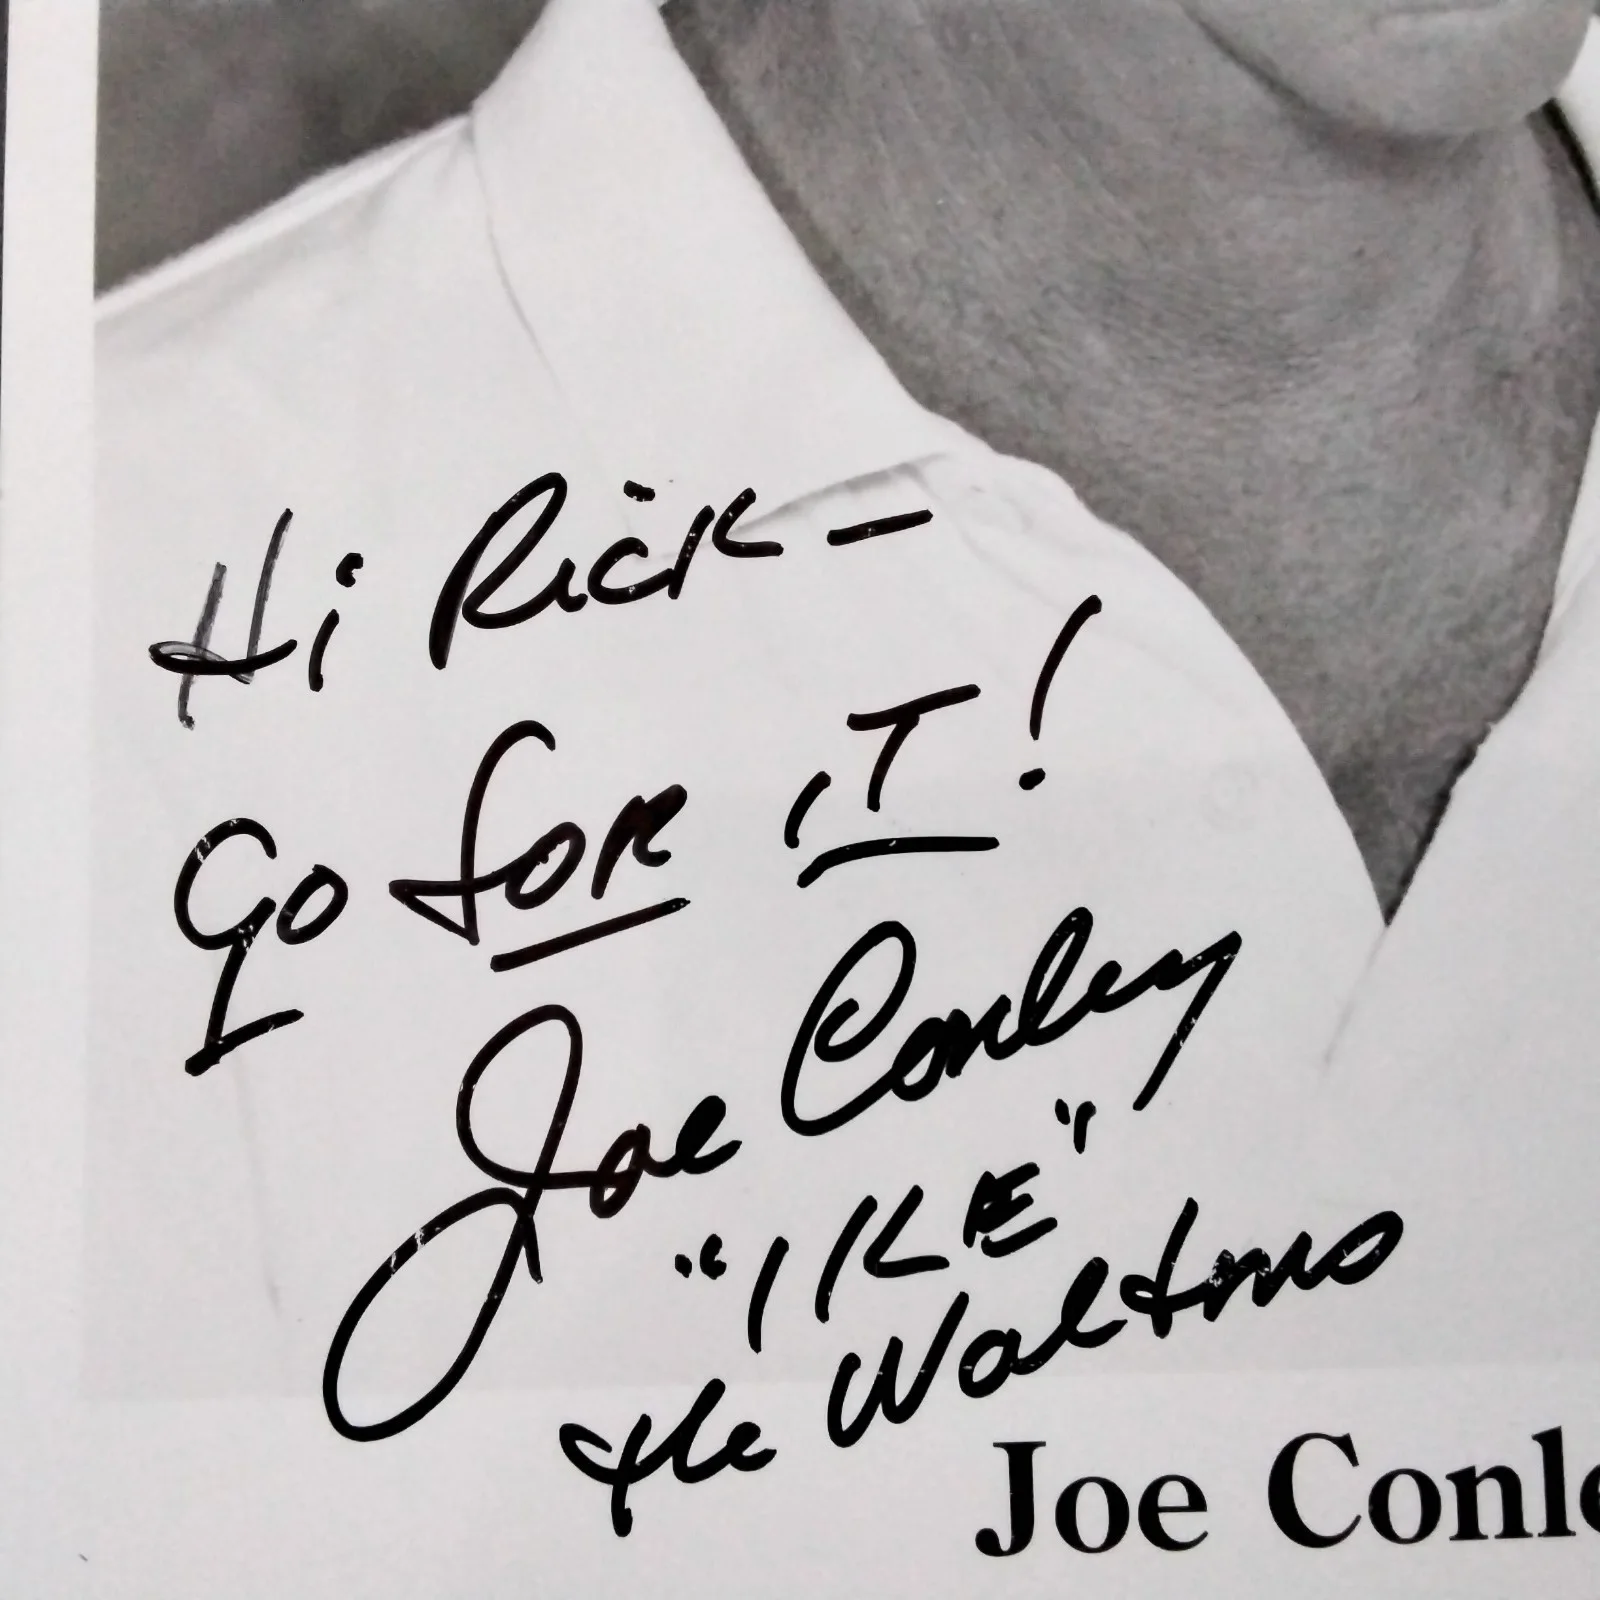 Hi Rick -
Go for it!
Joe Conley
"IKE"
the Waltons
Joe Conle